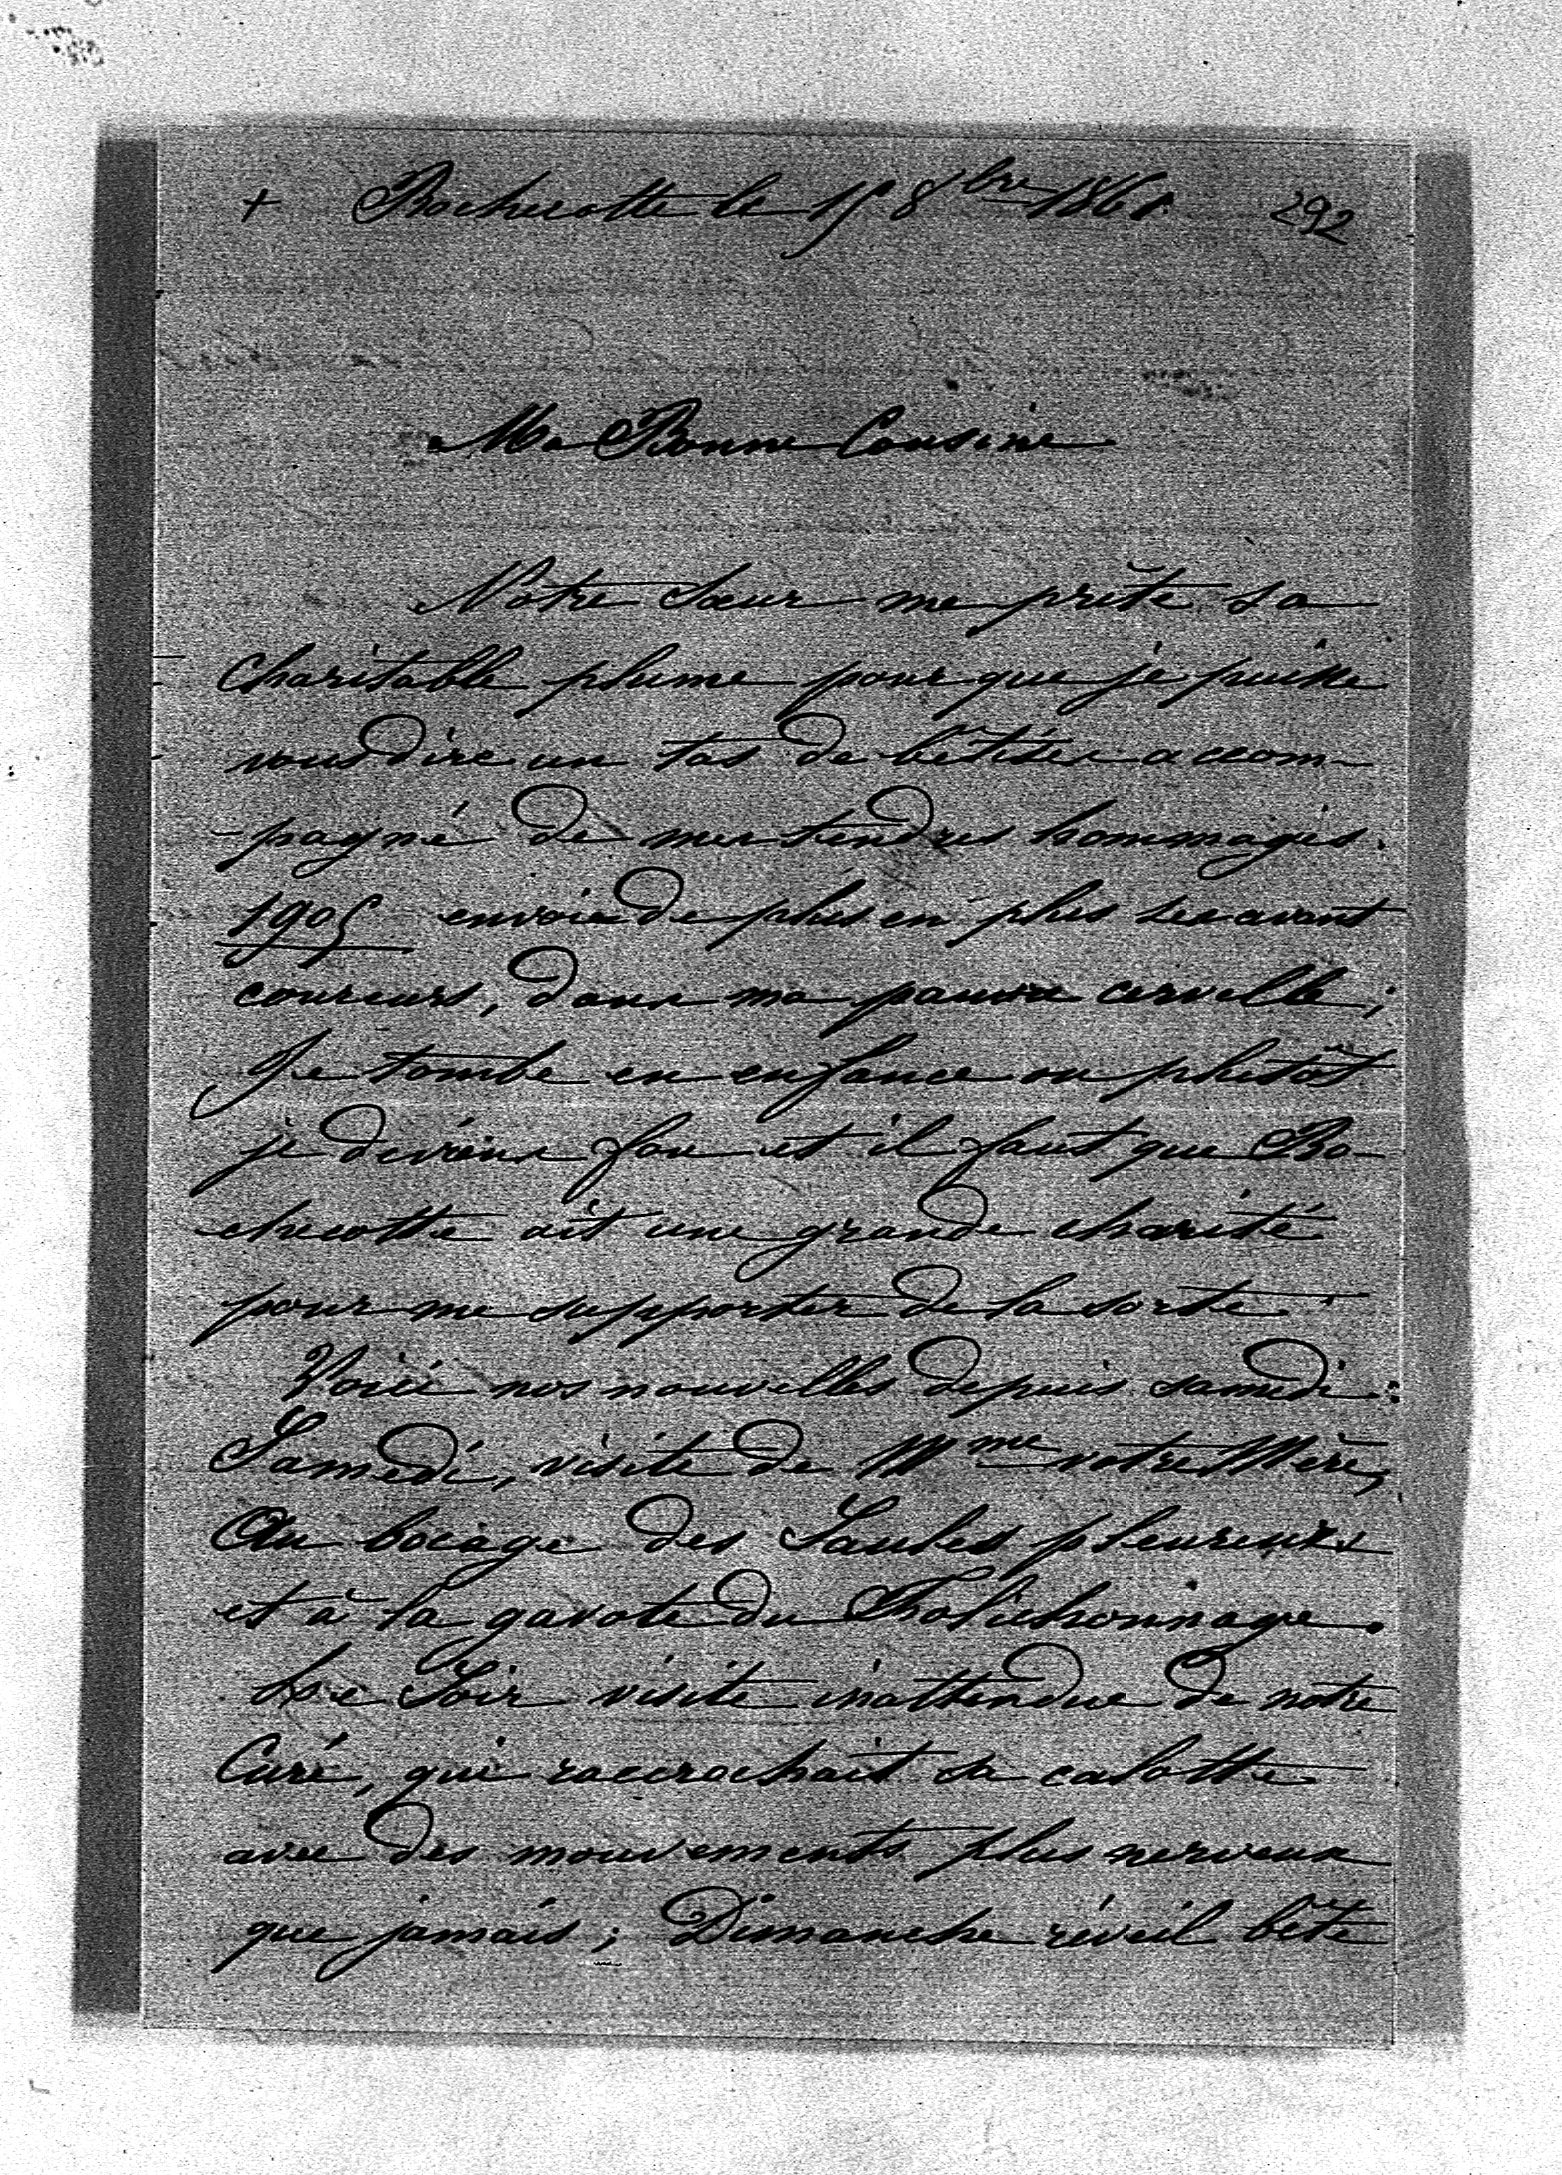 + Rochecotte le 15 8bre 1861. 292
Ma Bonne Cousine
Notre Sœur me prête sa
charitable plume pour que je puisse
vous dire un tas de bêtises accom-
-pagné de mes tendres hommages.
1905 envoie de plus en plus ses avant
coureurs, dans ma pauvre cervelle;
Je tombe en enfance ou plutôt
je deviens fou et il faut que Ro-
checotte ait une grande charité
pour me supporter de la sorte.
Voici nos nouvelles depuis samedi:
Samedi, visite de Mme votre Mère,
Au bocage des Saules pleureurs
et à la gavote du Folichonnage.
Le Soir visite inattendue de notre
Curé, qui raccrochait sa calotte
avec des mouvements plus nerveux
que jamais; Dimanche réveil bête